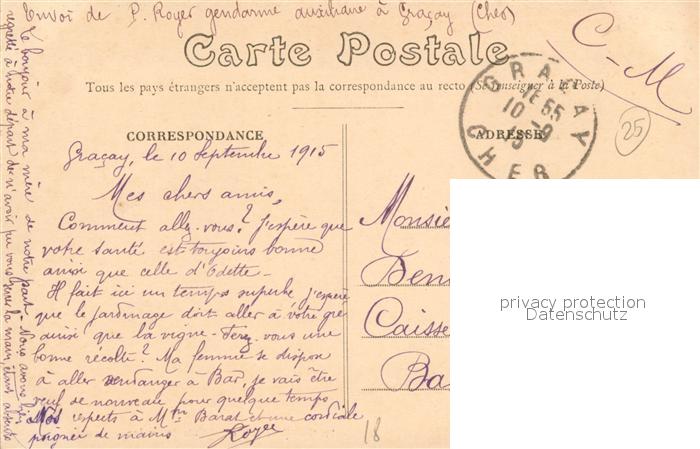 Envoi de P. Royer gendarme auxiliaire à Graçay (Cher)
Carte Postale
Tous les pays étrangers n'acceptent pas la correspondance au recto (Se renseigner à la Poste)
C-M
GRAÇAY
1E55
10-9
15
CHER
25
CORRESPONDANCE
ADRESSE
Graçay, le 10 Septembre 1915
Mes chers amis,
Comment allez-vous? J'espère que
votre santé est toujours bonne
ainsi que celle d'Odette-
Il fait ici un temps superbe, j'espère
que le jardinage doit aller à votre gré
ainsi que la vigne- Ferez-vous une
bonne récolte? Ma femme se dispose
à aller vendanger à Bar, je vais être
veuf de nouveau pour quelque temps
Mes respects à Mme Barat et une cordiale
poignée de mains
Royer
Le bonjour à ma mère de notre part- Nous avons bien
regretté à notre départ de n'avoir pu vous serrer la main, étant absents
Monsie
Deni
Caisse
Ba
18
privacy protection
Datenschutz